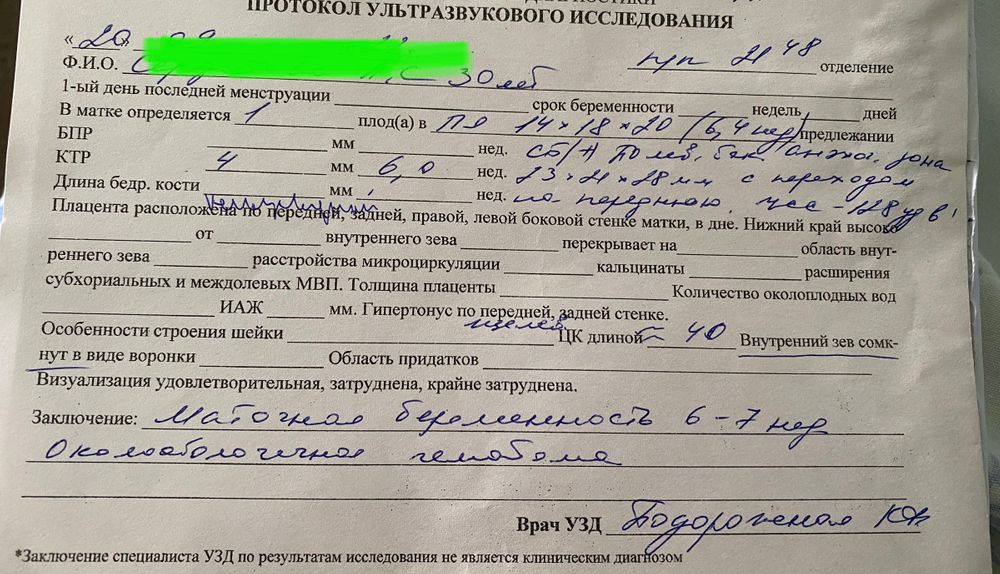 ПРОТОКОЛ УЛЬТРАЗВУКОВОГО ИССЛЕДОВАНИЯ
«20»
Ф.И.О. 30 лет отделение
1-ый день последней менструации срок беременности недель дней
В матке определяется 1 плод(а) в ПЯ 14×18×20 (6,4 нед) предлежании
БПР мм нед.
КТР 4 мм 6,0 нед. 23×21×28 мм с переходом
Длина бедр. кости мм нед. на переднюю. ЧСС - 128 уд в 1
Плацента расположена по передней, задней, правой, левой боковой стенке матки, в дне. Нижний край высоко
от внутреннего зева перекрывает на область внут-
реннего зева расстройства микроциркуляции кальцинаты расширения
субхориальных и междолевых МВП. Толщина плаценты Количество околоплодных вод
ИАЖ мм. Гипертонус по передней, задней стенке.
Особенности строения шейки ЦК длиной ~ 40 Внутренний зев сомк-
нут в виде воронки Область придатков
Визуализация удовлетворительная, затруднена, крайне затруднена.
Заключение: Маточная беременность 6-7 нед
Околооболочечная гематома
Врач УЗД
*Заключение специалиста УЗД по результатам исследования не является клиническим диагнозом